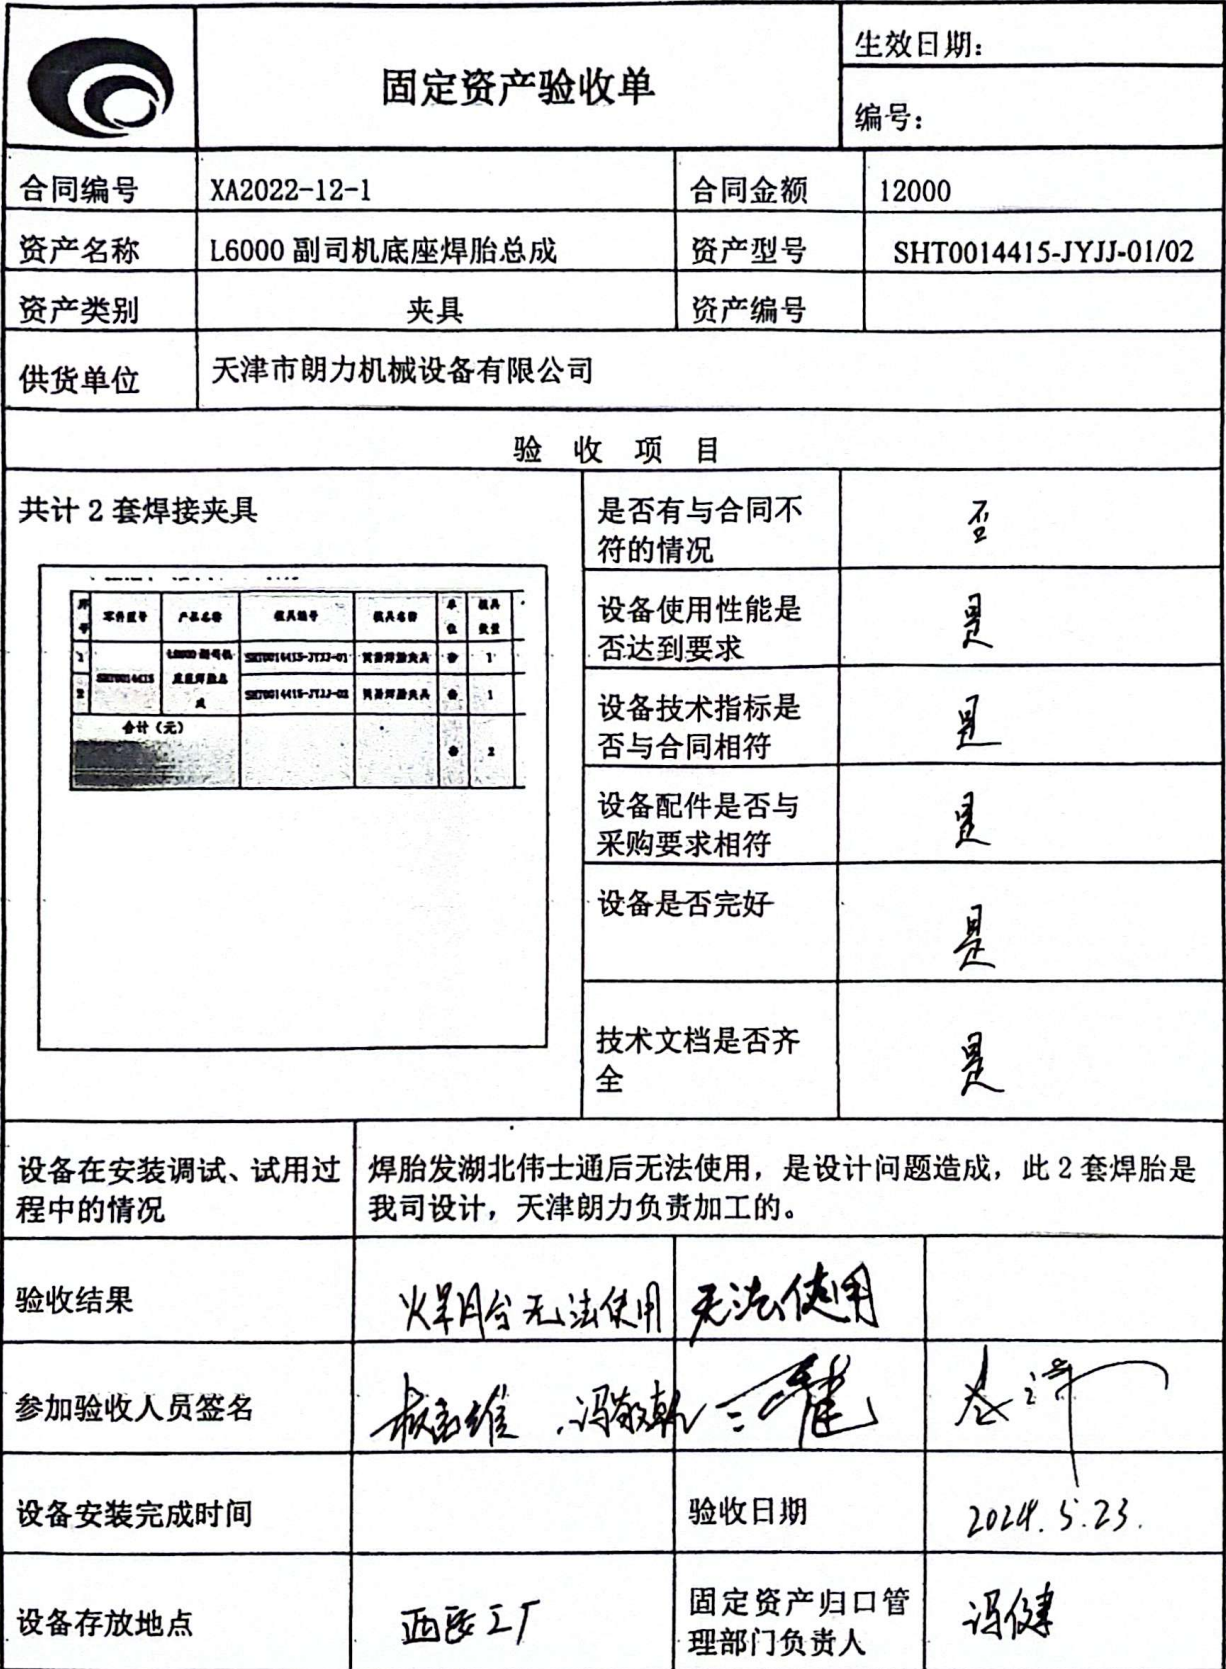 固定资产验收单
生效日期：
编号：
合同编号 XA2022-12-1 合同金额 12000
资产名称 L6000 副司机底座焊胎总成 资产型号 SHT0014415-JYJJ-01/02
资产类别 夹具 资产编号
供货单位 天津市朗力机械设备有限公司
验 收 项 目
共计 2 套焊接夹具
序号 零件图号 产品名称 模具编号 模具名称 单位 模具数量
1 SHT0014415 L6000 副司机底座焊胎总成 SHT0014415-JYJJ-01 焊胎夹具 套 1
2 SHT0014415-JYJJ-02 焊胎夹具 套 1
合计（元） 套 2
是否有与合同不
符的情况
否
设备使用性能是
否达到要求
是
设备技术指标是
否与合同相符
是
设备配件是否与
采购要求相符
是
设备是否完好
是
技术文档是否齐
全
是
设备在安装调试、试用过
程中的情况
焊胎发湖北伟士通后无法使用，是设计问题造成，此 2 套焊胎是
我司设计，天津朗力负责加工的。
验收结果 焊胎无法使用 无法使用
参加验收人员签名 冯敬乾
设备安装完成时间 验收日期 2024.5.23.
设备存放地点 西安工厂
固定资产归口管
理部门负责人
冯健